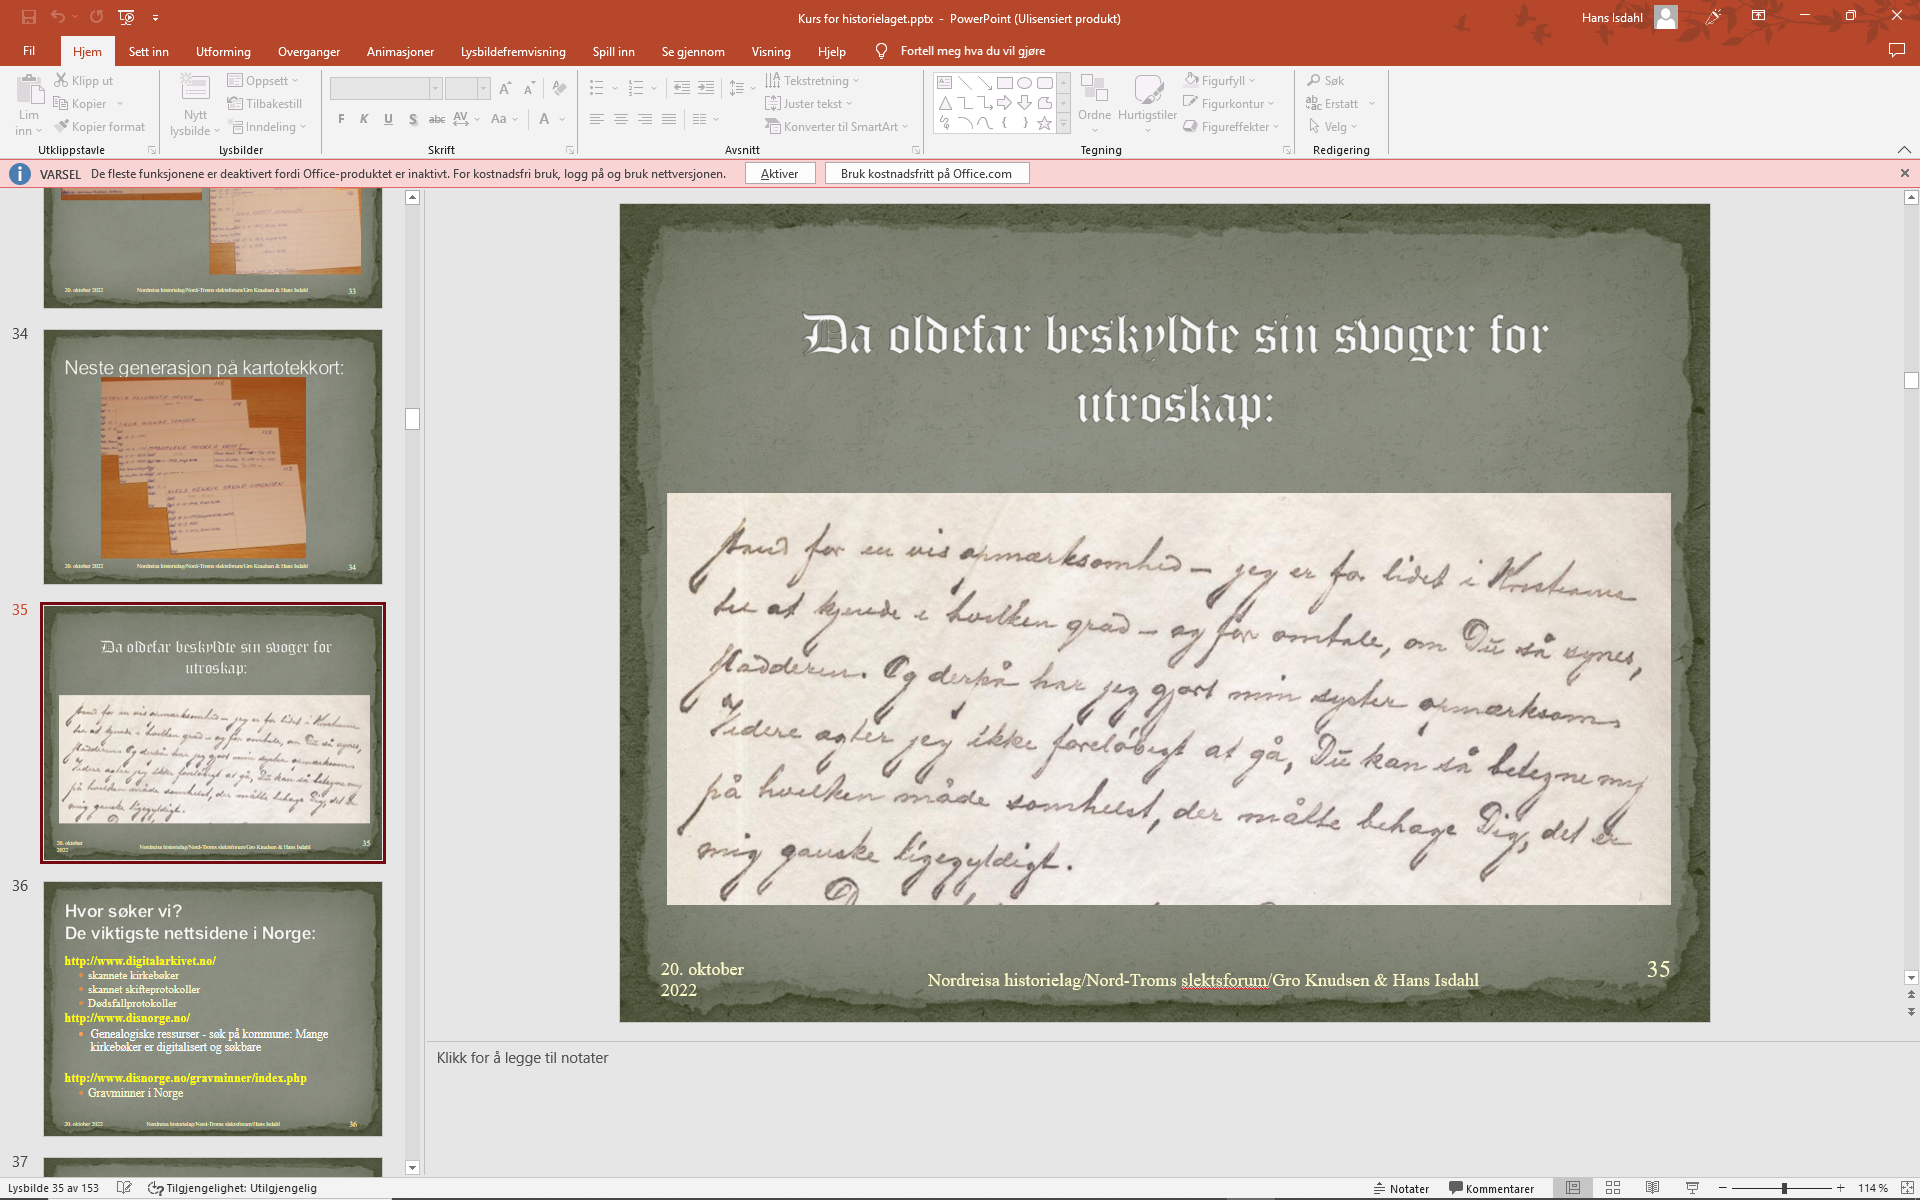 Kurs for historielaget.pptx - PowerPoint (Ulisensiert produkt)
Hans Isdahl
Fil
Hjem
Sett inn
Utforming
Overganger
Animasjoner
Lysbildefremvisning
Spill inn
Se gjennom
Visning
Hjelp
Fortell meg hva du vil gjøre
Lim inn
Klipp ut
Kopier
Kopier format
Utklippstavle
Nytt lysbilde
Oppsett
Tilbakestill
Inndeling
Lysbilder
F K U S abc AV Aa A
Skrift
Tekstretning
Juster tekst
Konverter til SmartArt
Avsnitt
Ordne
Hurtigstiler
Figurfyll
Figurkontur
Figureffekter
Tegning
Søk
Erstatt
Velg
Redigering
VARSEL De fleste funksjonene er deaktivert fordi Office-produktet er inaktivt. For kostnadsfri bruk, logg på og bruk nettversjonen.
Aktiver
Bruk kostnadsfritt på Office.com
20. oktober 2022 Nordreisa historielag/Nord-Troms slektsforum/Gro Knudsen & Hans Isdahl 33
34
Neste generasjon på kartotekkort:
NIELS HENRIK DANILD SIMONSEN
20. oktober 2022 Nordreisa historielag/Nord-Troms slektsforum/Gro Knudsen & Hans Isdahl 34
35
Da oldefar beskyldte sin svoger for
utroskap:
20. oktober
2022
Nordreisa historielag/Nord-Troms slektsforum/Gro Knudsen & Hans Isdahl 35
36
Hvor søker vi?
De viktigste nettsidene i Norge:
http://www.digitalarkivet.no/
skannete kirkebøker
skannet skifteprotokoller
Dødsfallprotokoller
http://www.disnorge.no/
Genealogiske ressurser - søk på kommune: Mange
kirkebøker er digitalisert og søkbare
http://www.disnorge.no/gravminner/index.php
Gravminner i Norge
20. oktober 2022 Nordreisa historielag/Nord-Troms slektsforum/Gro Knudsen & Hans Isdahl 36
37
Da oldefar beskyldte sin svoger for
utroskap:
for en vis opmærksomhed – jeg er for lidet i Kristiania
til at kjende i hvilken grad – og for omtale, om Du så synes,
sladderen. Og derpå har jeg gjort min syster opmærksom.
Videre agter jeg ikke foreløbigt at gå, Du kan så betegne mig
på hvilken måde somhelst, der måtte behage Dig, det er
mig ganske ligegyldigt.
20. oktober
2022
Nordreisa historielag/Nord-Troms slektsforum/Gro Knudsen & Hans Isdahl
35
Klikk for å legge til notater
Lysbilde 35 av 153
Tilgjengelighet: Utilgjengelig
Notater
Kommentarer
114 %